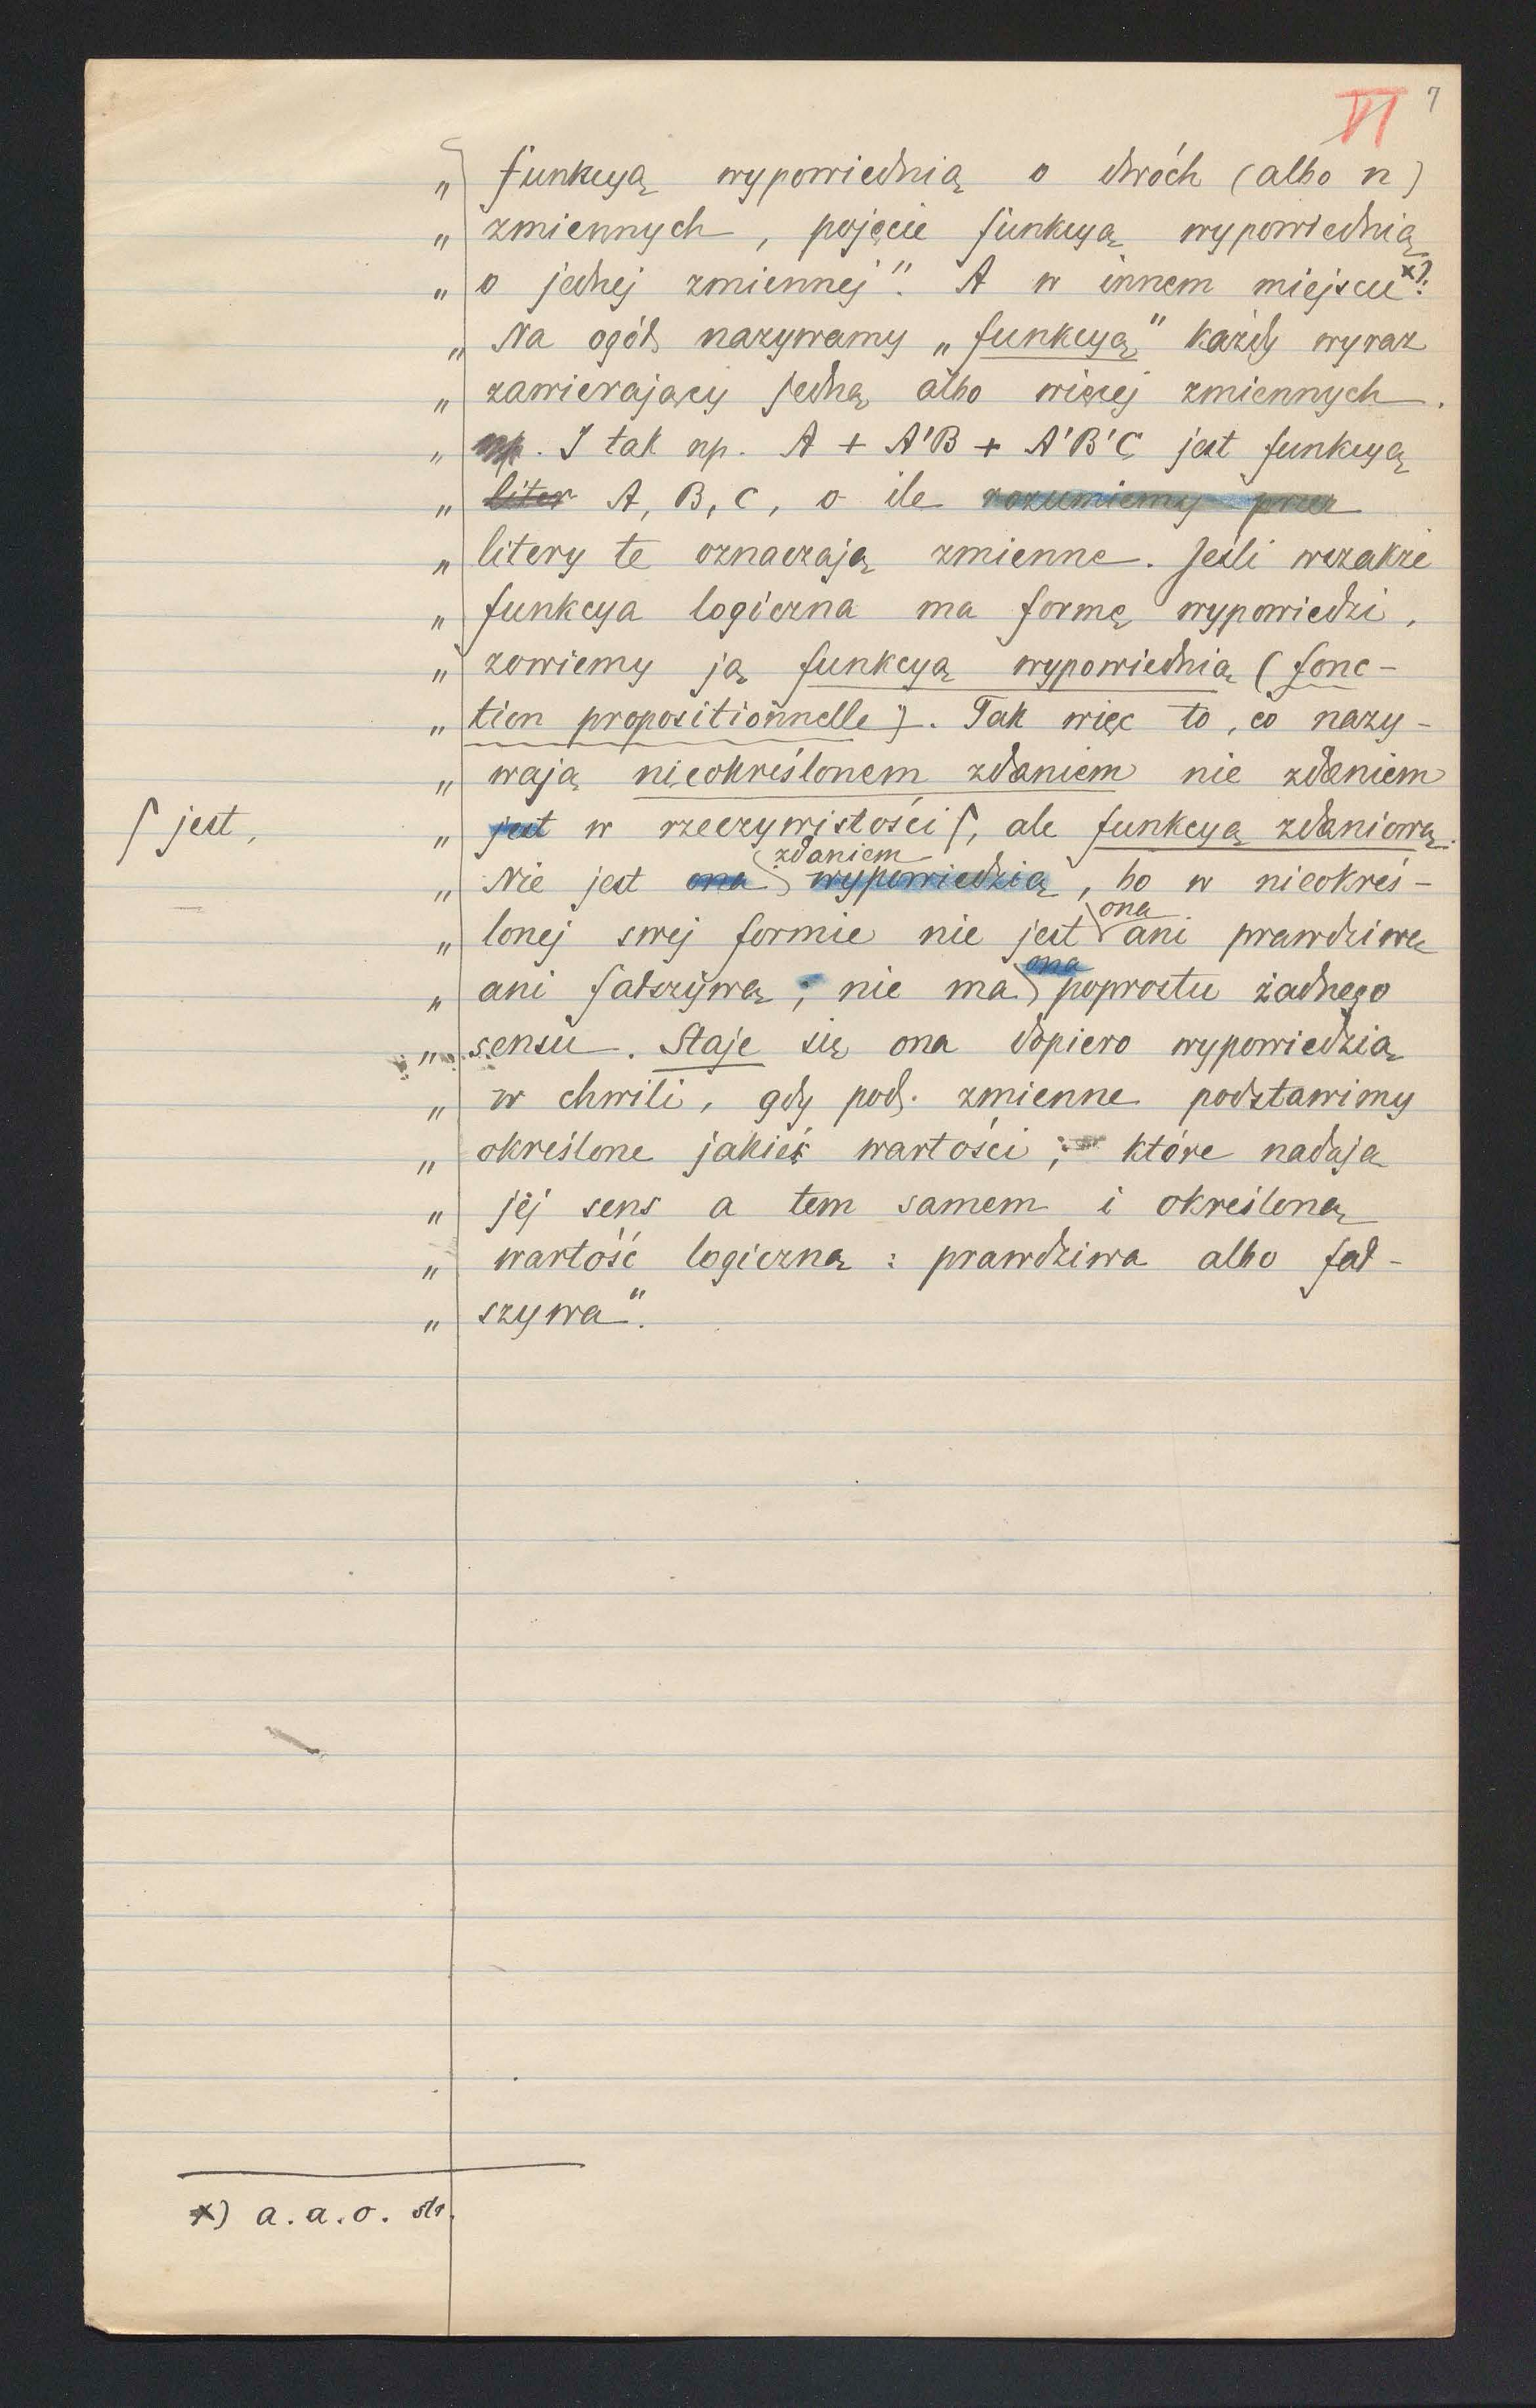 VI 7
„ funkcyą wypowiednią o dwóch (albo n)
„ zmiennych, pojęcie funkcyą wypowiednią
„ o jednej zmiennej". A w innem miejscu x):
„ Na ogół nazywamy „funkcyą" każdy wyraz
„ zawierający jedną albo więcej zmiennych.
„ np. I tak np. A + A'B + A'B'C jest funkcyą
„ liter A, B, C, o ile rozumiemy przez
„ litery te oznaczają zmienne. Jeśli wszakże
„ funkcya logiczna ma formę wypowiedzi,
„ zowiemy ją funkcyą wypowiednią (fonc-
„ tion propositionnelle). Tak więc to, co nazy-
„ wają nieokreślonem zdaniem nie zdaniem
⌠ jest,
„ jest w rzeczywistości ⌠, ale funkcyą zdaniową.
zdaniem
„ Nie jest ona wypowiedzią, bo w nieokreś-
ona
„ lonej swej formie nie jest ani prawdziwą
ona
„ ani fałszywą; nie ma poprostu żadnego
„ sensu. Staje się ona dopiero wypowiedzią
„ w chwili, gdy pod. zmienne podstawimy
„ określone jakieś wartości, które nadają
„ jej sens a tem samem i określoną
„ wartość logiczną: prawdziwa albo fał-
„ szywa".
x) a.a.o. str.